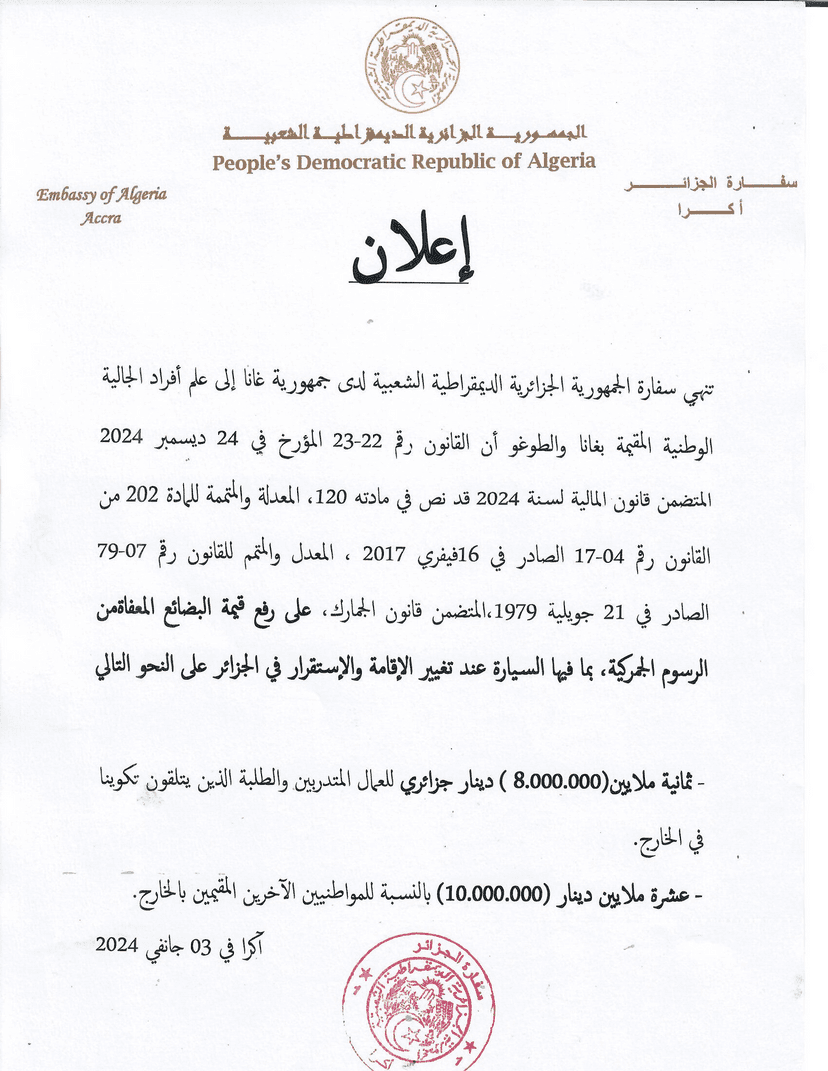 الجمهورية الجزائرية الديمقراطية الشعبية
People's Democratic Republic of Algeria
Embassy of Algeria
Accra
سفارة الجزائر
أكرا
إعلان
تنهي سفارة الجمهورية الجزائرية الديمقراطية الشعبية لدى جمهورية غانا إلى علم أفراد الجالية
الوطنية المقيمة بغانا والطوغو أن القانون رقم 22-23 المؤرخ في 24 ديسمبر 2024
المتضمن قانون المالية لسنة 2024 قد نص في مادته 120، المعدلة والمتممة للمادة 202 من
القانون رقم 04-17 الصادر في 16فيفري 2017 ، المعدل والمتمم للقانون رقم 07-79
الصادر في 21 جويلية 1979،المتضمن قانون الجمارك، على رفع قيمة البضائع المعفاةمن
الرسوم الجمركية، بما فيها السيارة عند تغيير الإقامة والإستقرار في الجزائر على النحو التالي
- ثمانية ملايين(8.000.000 ) دينار جزائري للعمال المتدربين والطلبة الذين يتلقون تكوينا
في الخارج.
- عشرة ملايين دينار (10.000.000) بالنسبة للمواطنيين الآخرين المقيمين بالخارج.
آكرا في 03 جانفي 2024
سفارة الجزائر
الجزائرية الديمقراطية الشعبية
أكرا